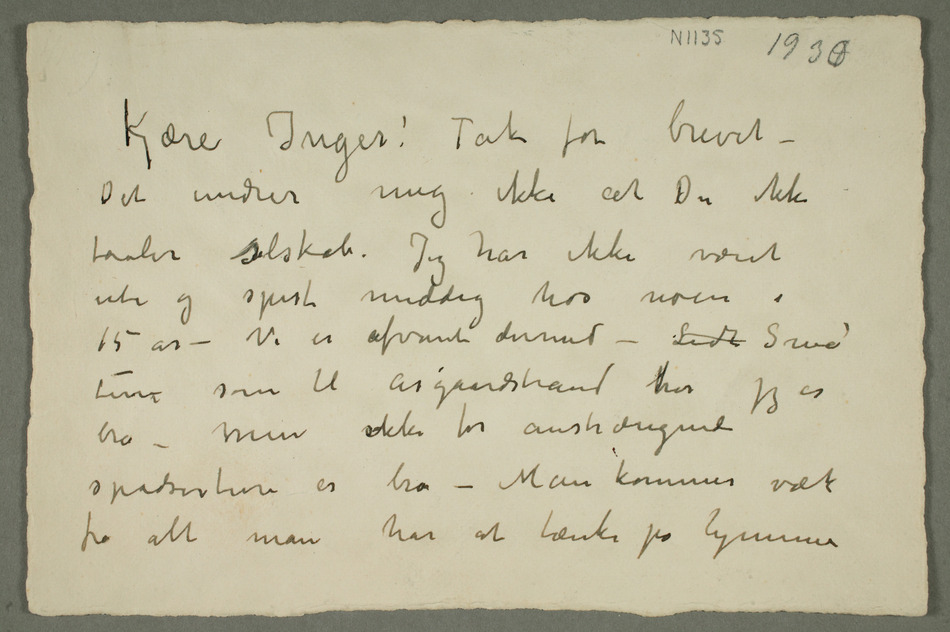 N1135 1930
Kjære Inger! Tak for brevet –
Det undrer mig ikke at Du ikke
taaler selskab. Jeg har ikke været
ute og spist middag hos noen i
15 år – Vi er afvant dermed – Små
turer som til Åsgaardstrand tror jeg er
bra – men ikke for anstrængende
spadserture er bra – Man kommer væk
fra alt man har at tænke på hjemme